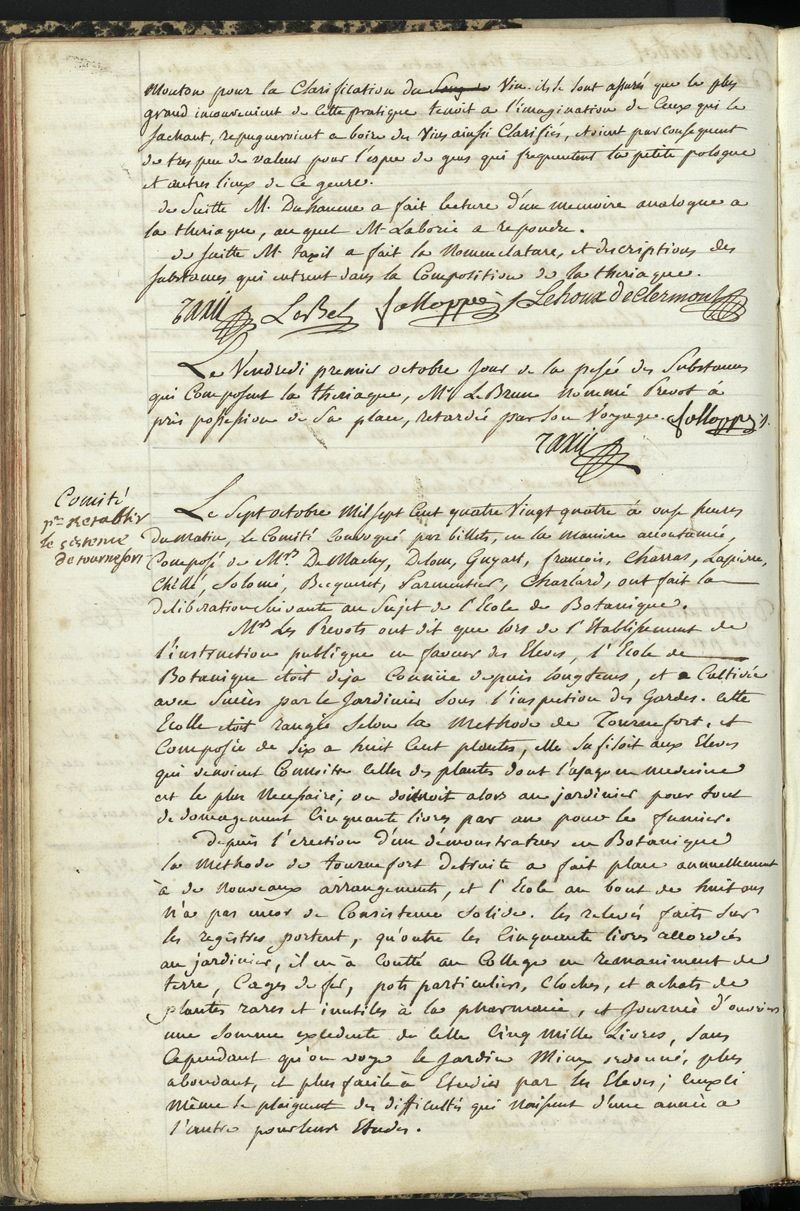 Mouton pour la Clarification du Sang de Vin. ils se sont assurés que le plus
grand inconvenient de cette pratique tenoit a l'imagination de Ceux qui le
sachant, repugneroient a boire des Vins ainsi Clarifiés, etoient par consequent
de tres peu de valeur pour l'espece de gens qui frequentent la petite pologne
et autres lieux de Ce genre.
de Suitte M. Duhamme a fait lecture d'un memoire analogue a
la theriaque, auquel M. Laborie a repondu.
de suitte M. taxil a fait la Nomenclature, et descriptions des
substances qui entrent dans la Composition de la theriaque.
TAXIL LeBel Solloppé Lehoux de Clermont
Le Vendredi premier octobre Jour de la pesée des Substances
qui Composent la theriaque, Mr LeBrun Nommé Prevot à
pris possession de Sa place, retardée par Son Voyage. Solloppé
TAXIL
Comité
pr retablir
le sisteme
de tournefort
Le Sept octobre Mil sept Cent quatre Vingt quatre à onze heures
du matin, le Comité Convoqué par billets, en la maniere accoutumée,
Composé de Mrs DeMachy, Delon, Guyart, francois, Charras, Lapierre,
Chellé, Solomé, Becqueret, Parmentier, Charlard, ont fait la
deliberation Suivante au Sujet de l'Ecole de Botanique.
Mrs Les Prevots ont dit que lors de l'Etablissement de
l'instruction publique en faveur des Eleves, l'Ecole de
Botanique etoit deja Connüe depuis longtems, et Cultivée
avec Succès par le Jardinier sous l'inspection des Gardes. cette
Ecolle etoit rangée selon la Methode de Tournefort, et
Composée de six a huit Cent plantes, elle sufisoit aux Eleves
qui venoient Connoitre Celles des plantes dont l'usage en medecine
est le plus Necessaire; on donnoit alors au jardinier pour tout
dedomagement Cinquante livres par an pour le fumier.
depuis l'erection d'un démonstrateur en Botanique
la Methode de tournefort detruite a fait place annuellement
à de Nouveaux arrangements, et l'Ecole au bout de huit ans
n'a pas encor de Consistence solide. les relevés faits sur
les registres portent, qu'outre les Cinquante livres accordées
au jardinier, il en à Coutté au College en remaniment de
terre, Cages de fer, pots particuliers, Cloches, et achats de
plantes rares et inutiles à la pharmacie, et Journée d'ouvriers
une somme excedente de celle Cinq mille Livres, Sans
Cependant qu'on voye le Jardin Mieux ordonné, plus
abondant, et plus facile à Etudier par les Eleves; Ceuxci
même se plaignent des difficultés qui Naissent d'une année a
l'autre pour leurs Etudes.